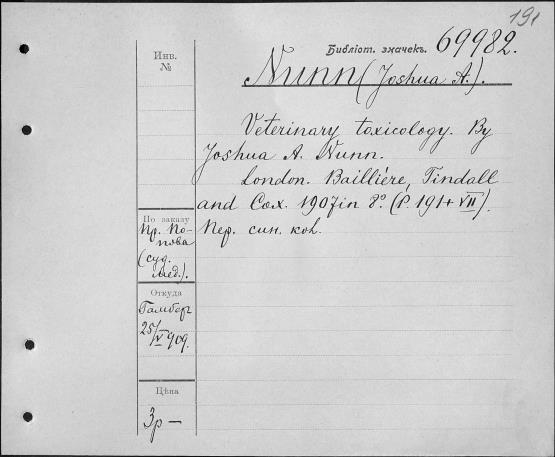 191
Библіот. значекъ. 69982.
Инв.
№
Nunn (Joshua A.).
Veterinary toxicology. By
Joshua A. Nunn.
London. Baillière, Tindall
and Cox. 1907 in 8º. (P. 191 + VII).
Пер. син. кол.
По заказу
Пр. По-
пова
(суд.
мед.).
Откуда
Гамбер
25/V 909.
Цѣна
3 р —